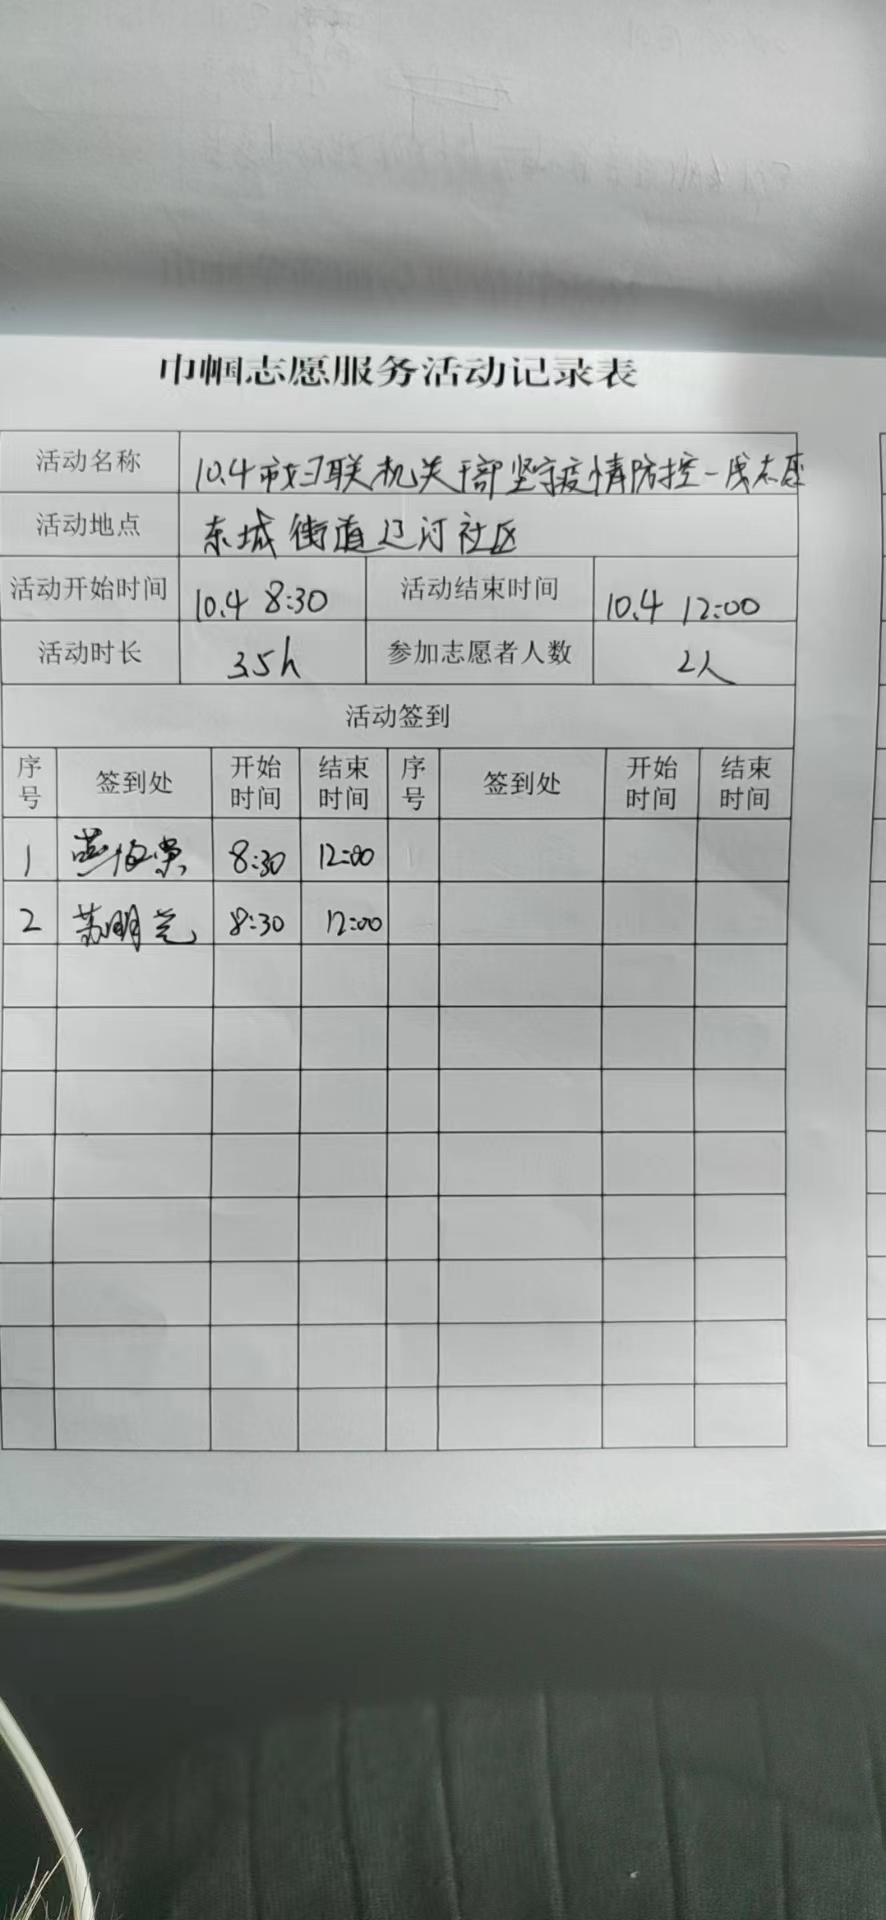 巾帼志愿服务活动记录表
活动名称 10.4市妇联机关干部坚守疫情防控一线志愿
活动地点 东城街道辽河社区
活动开始时间 10.4 8:30 活动结束时间 10.4 12:00
活动时长 3.5h 参加志愿者人数 2人
活动签到
序号 签到处 开始时间 结束时间 序号 签到处 开始时间 结束时间
1 8:30 12:00
2 苏明芝 8:30 12:00